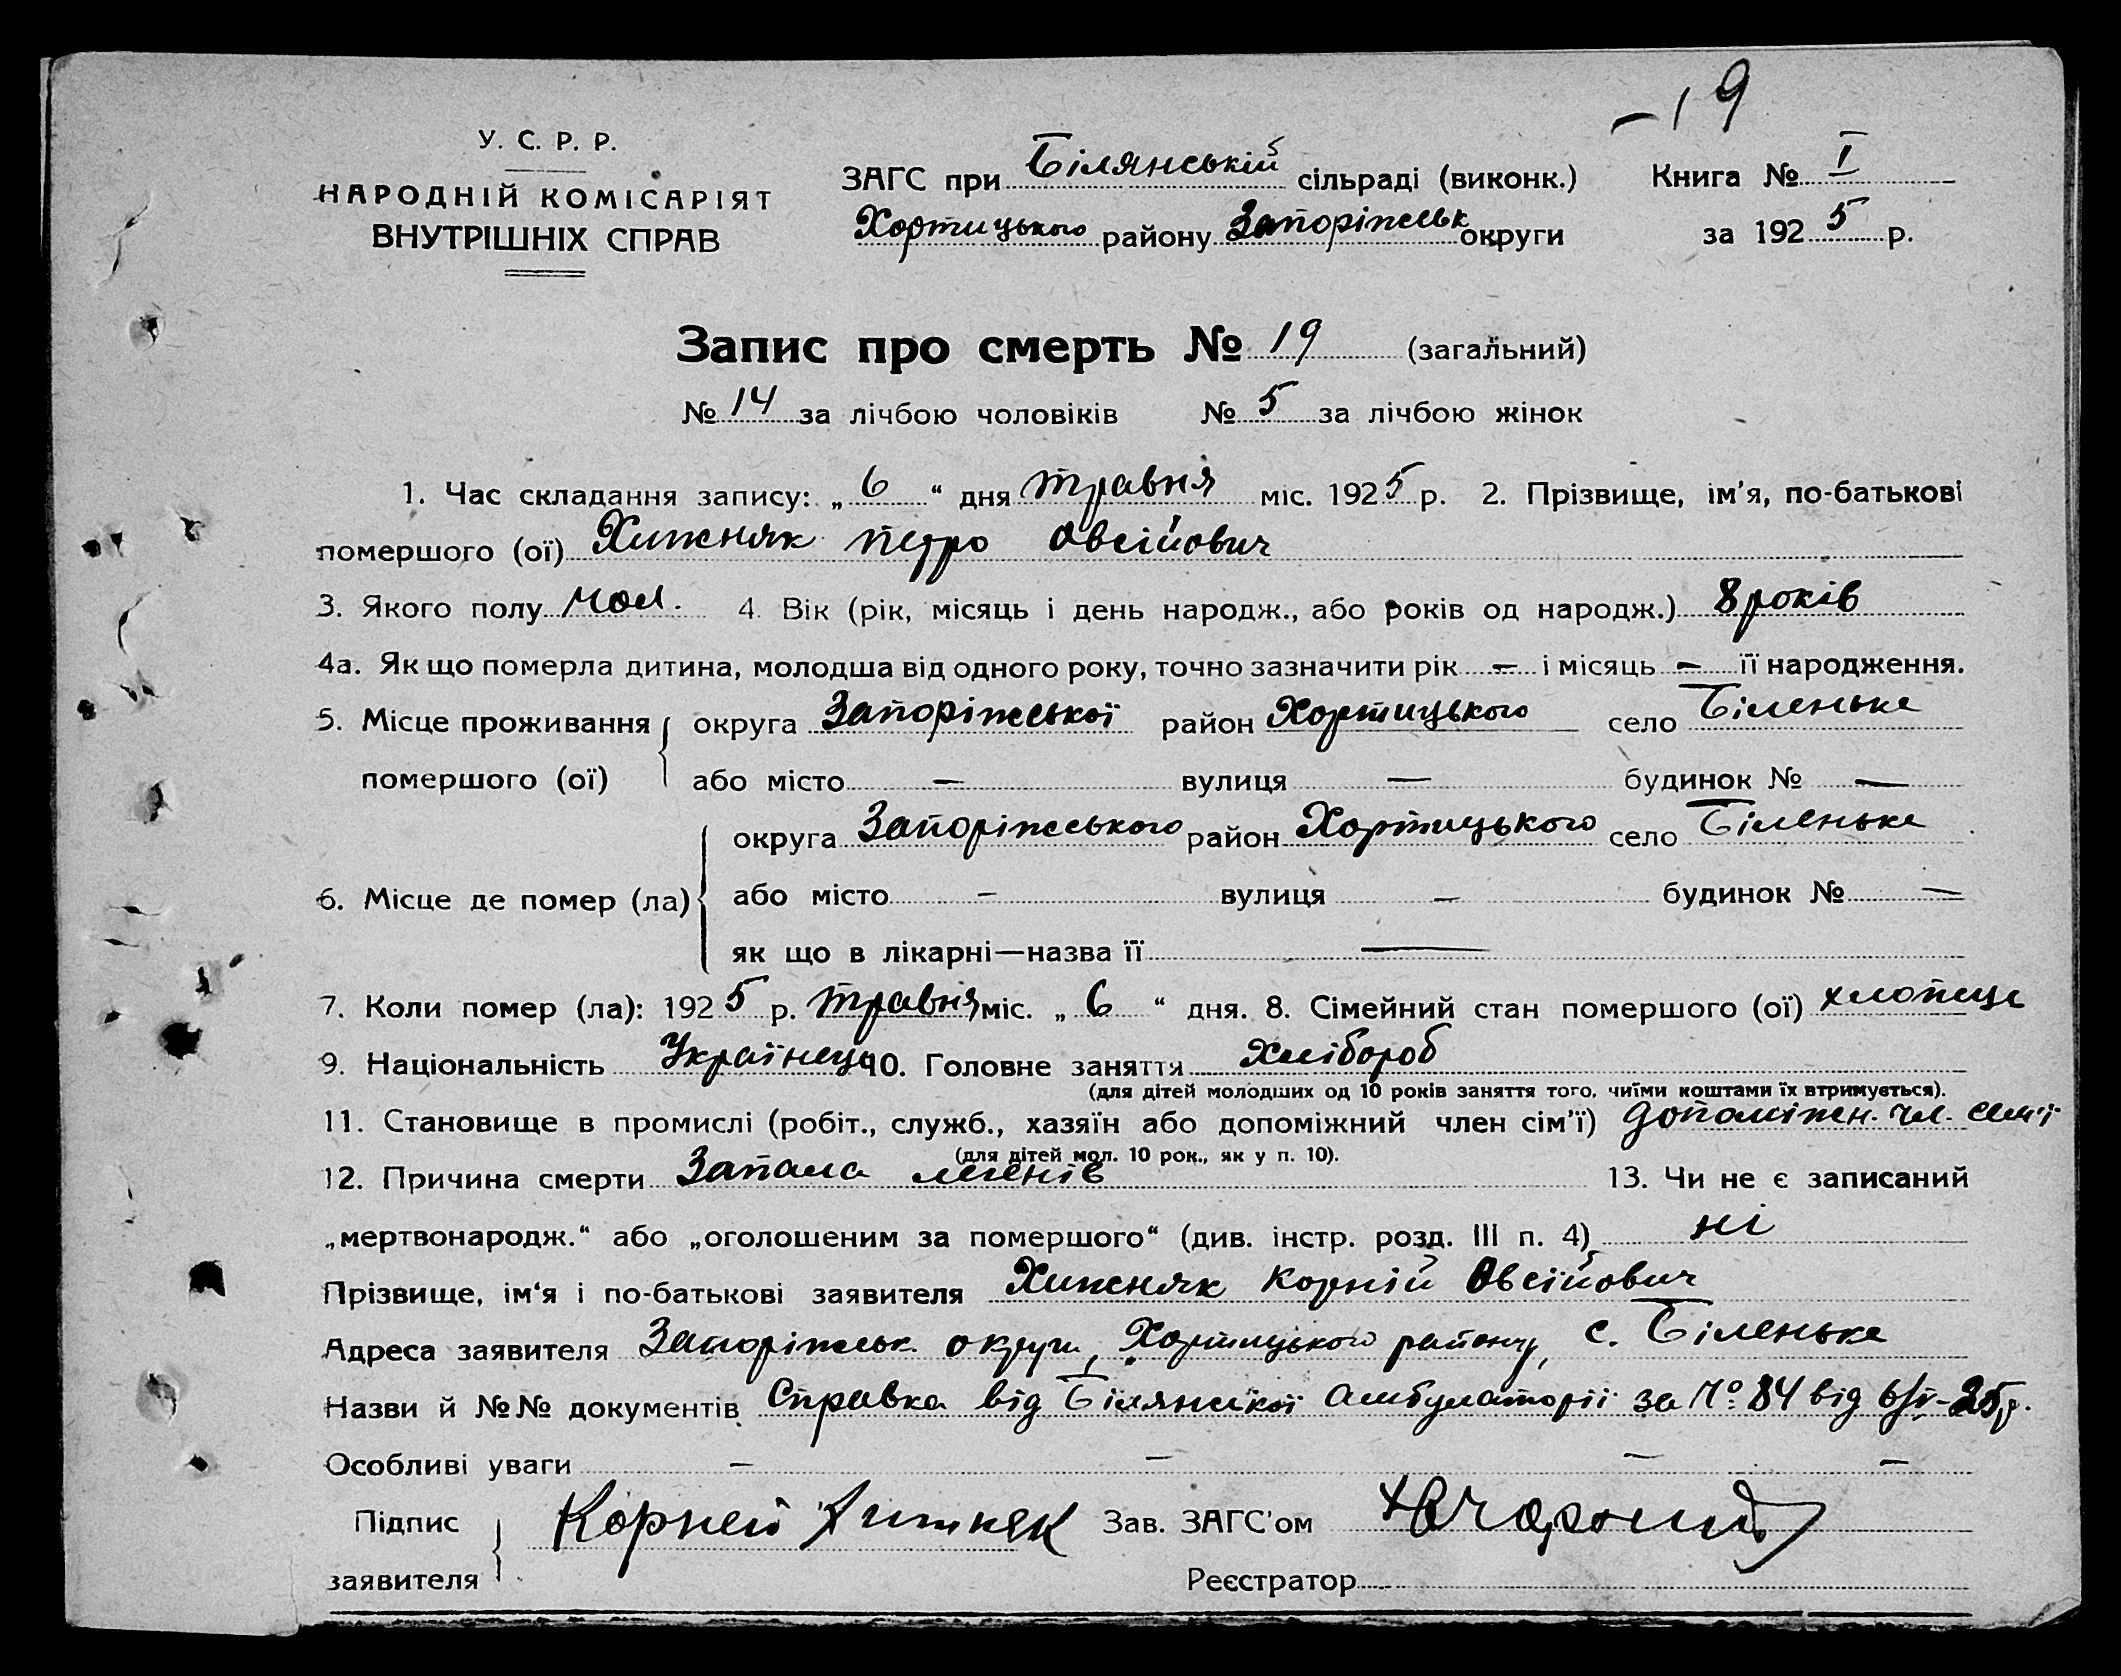 -19
У. С. Р. Р.
НАРОДНІЙ КОМІСАРІЯТ
ВНУТРІШНІХ СПРАВ
ЗАГС при Білянській сільраді (виконк.) Книга № I
Хортицького району Запоріжськ округи за 1925 р.
Запис про смерть № 19 (загальний)
№ 14 за лічбою чоловіків № 5 за лічбою жінок
1. Час складання запису: „ 6 “ дня травня міс. 1925 р. 2. Прізвище, ім’я, по-батькові
помершого (ої) Хижняк Петро Овсійович
3. Якого полу чол. 4. Вік (рік, місяць і день народж., або років од народж.) 8 років
4а. Як що померла дитина, молодша від одного року, точно зазначити рік — і місяць — її народження.
5. Місце проживання округа Запоріжської район Хортицького село Біленьке
помершого (ої) або місто — вулиця — будинок № —
округа Запоріжського район Хортицького село Біленьке
6. Місце де помер (ла) або місто — вулиця — будинок № —
як що в лікарні—назва її —
7. Коли помер (ла): 1925 р. травня міс. „ 6 “ дня. 8. Сімейний стан помершого (ої) хлопець
9. Національність Українець 10. Головне заняття Хлібороб
(для дітей молодших од 10 років заняття того, чиїми коштами їх втримується).
11. Становище в промислі (робіт., служб., хазяїн або допоміжний член сім’ї) допоміжн. чл. сем'ї
(для дітей мол. 10 рок., як у п. 10).
12. Причина смерти Запала легенів 13. Чи не є записаний
„мертвонародж.“ або „оголошеним за помершого“ (див. інстр. розд. III п. 4) ні
Прізвище, ім‘я і по-батькові заявителя Хижняк Корній Овсійович
Адреса заявителя Запоріжськ. округи, Хортицького району, с. Біленьке
Назви й №№ документів Справка від Білянської Амбулаторії за № 84 від 6/V-25р.
Особливі уваги — — — —
Підпис Корней Хижняк Зав. ЗАГС’ом
заявителя Реєстратор